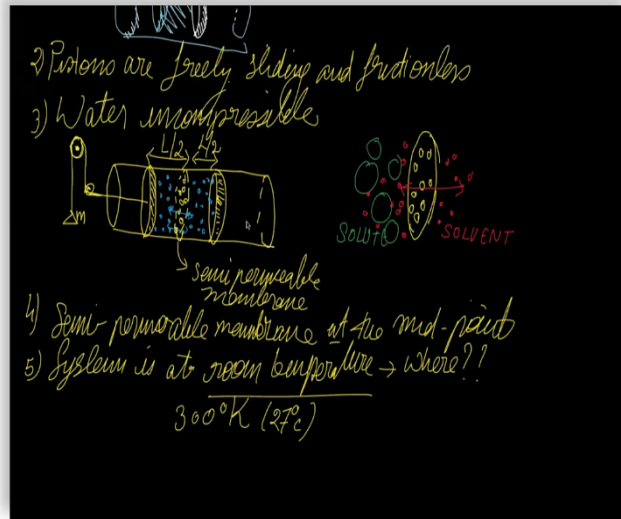 2) Pistons are freely sliding and frictionless
3) Water incompressible
L/2 L/2
m
SOLUTE SOLVENT
semi permeable
membrane
4) Semi-permeable membrane at the mid-point
5) System is at room temperature → where??
300°K (27°C)